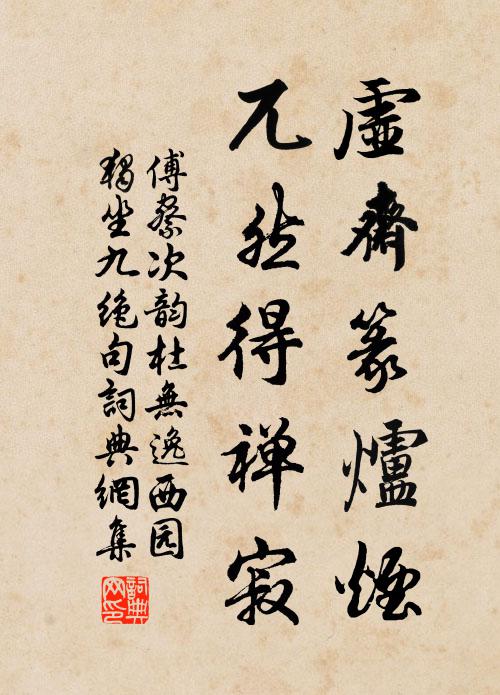 虛齋篆爐煙
兀然得禅寂
傅察次韵杜無逸西园
獨坐九绝句詞典網集
詞典網印